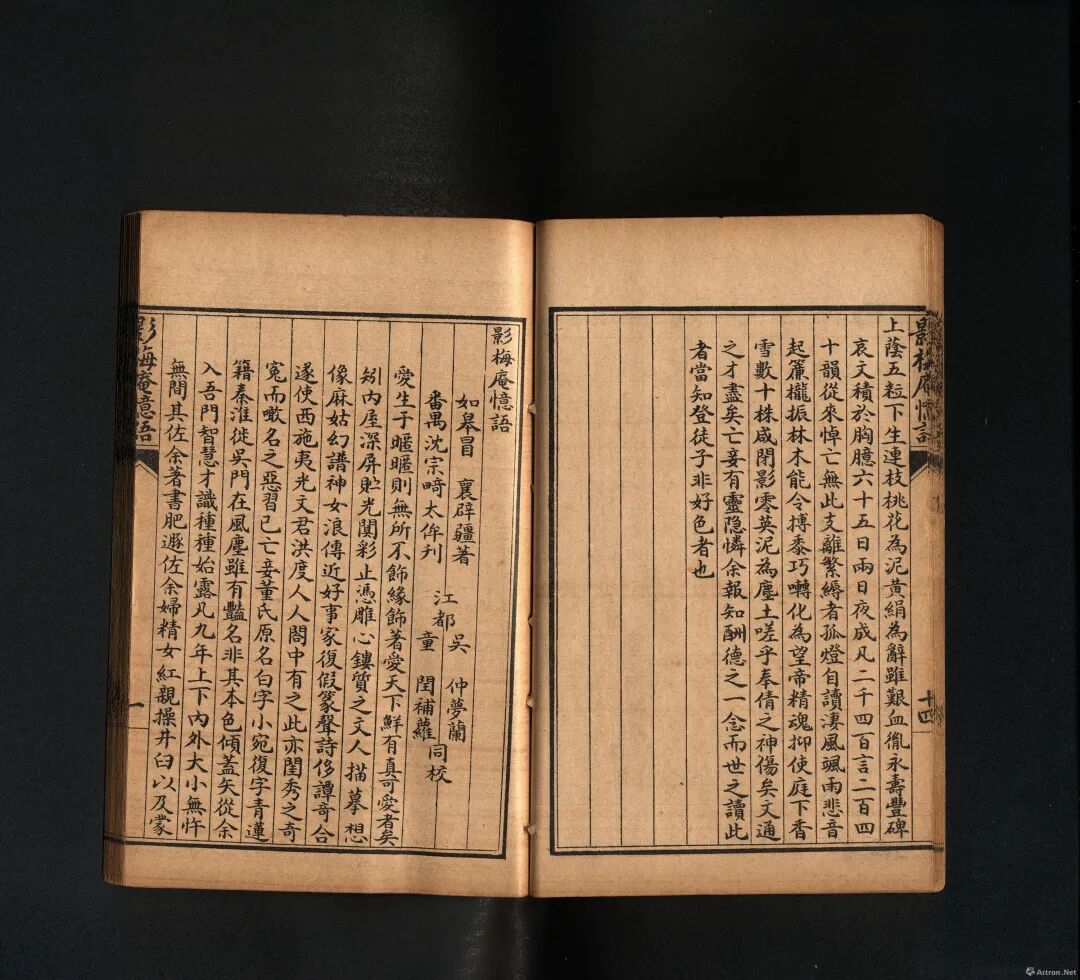 影梅庵憶語
十四
上蔭五粒下生連枝桃花為泥黃絹為辭雖艱血胤永壽豐碑
哀文積於胸臆六十五日兩日夜成凡二千四百言二百四
十韻從來悼亡無此支離繁縟者孤燈自讀淒風颯雨悲音
起簾櫳振林木能令摶黍巧囀化為望帝精魂抑使庭下香
雪數十株咸閉影零英泥為塵土嗟乎奉倩之神傷矣文通
之才盡矣亡妾有靈隐憐余報知酬德之一念而世之讀此
者當知登徒子非好色者也
影梅庵憶語
如皋冒　襄辟疆著
番禺沈宗畸太侔刋
江都吳　仲夢蘭
童　閏補蘿
同校
愛生于暱暱則無所不飾緣飾著愛天下鮮有真可愛者矣
矧內屋深屏貯光闃彩止憑雕心鏤質之文人描摹想
像麻姑幻譜神女浪傳近好事家復假篆聲詩侈譚奇合
遂使西施夷光文君洪度人人閤中有之此亦閨秀之奇
冤而噉名之惡習已亡妾董氏原名白字小宛復字青蓮
籍秦淮徙吳門在風塵雖有豔名非其本色傾蓋矢從余
入吾門智慧才識種種始露凡九年上下內外大小無忤
無間其佐余著書肥遯佐余婦精女紅親操井臼以及蒙
影梅庵憶語
一
Artron.Net